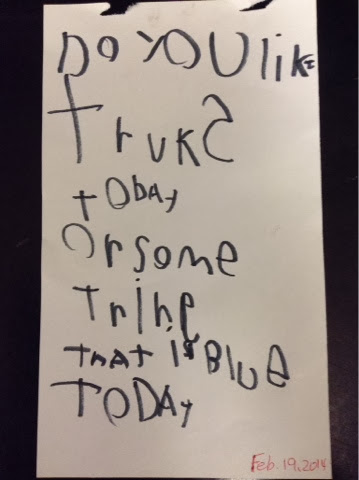 Do YOU like
TrukS
tObAy
Orsome
Trine
tHAt is Blue
TODAy
Feb. 19, 2014